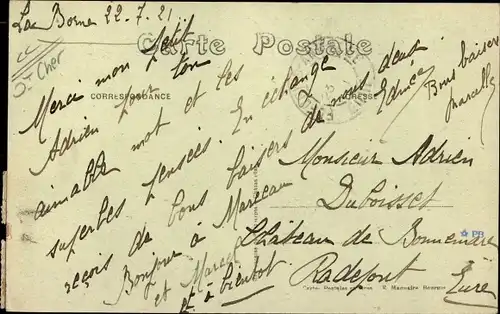 La Borne 22.7.21
Cher
Carte Postale
CORRESPONDANCE
ADRESSE
Merci mon petit
Adrien pour ton
aimable mot et les
superbes pensées. En échange
reçois de bons baisers de nous deux.
Bonjour à Marceau
et Marcel
et à bientôt
Bons baisers
Marcelle
Monsieur Adrien
Duboisset
Château de Bonnemare
Radepont
Eure
PB